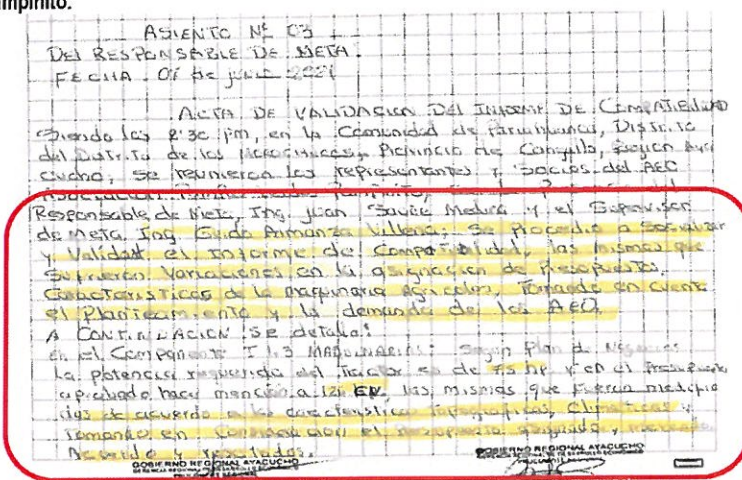 mpinito.
ASIENTO Nº 03
DEL RESPONSABLE DE META.
FECHA. 07 de julio 2021
ACTA DE VALIDACION DEL INFORME DE COMPATIBILIDAD
Siendo las 2:30 pm, en la Comunidad de, Distrito
del Distrito de los Morochucos, Provincia de Cangallo, Región Aya
cucho, se reunieron los representantes y socios del AEO
Responsable de Meta, Ing. Juan Medina y el Supervisor
de Meta, Ing. Guido Villena; se procedio a Socializar
y Validar el Informe de Compatibilidad, las mismas que
Sufrieron Variaciones en la asignación de Presupuestos,
Caracteristicas de la maquinaria Agricolas, Tomando en cuenta
el Planteamiento y la demanda de los AEO.
A CONTINUACION SE detalla:
En el Componente 1.3 MAQUINARIAS: Según Plan de Negocios
la potencia requerida del Tractor es de 75 hp y en el Presupuesto
aprobado hace mención a 120 CV, las mismas que fueron
das de acuerdo a las caracteristicas topograficas, Climaticas y
Tomando en Consideración el Presupuesto asignado y mercado
Acuerdo y
GOBIERNO REGIONAL AYACUCHO GOBIERNO REGIONAL AYACUCHO